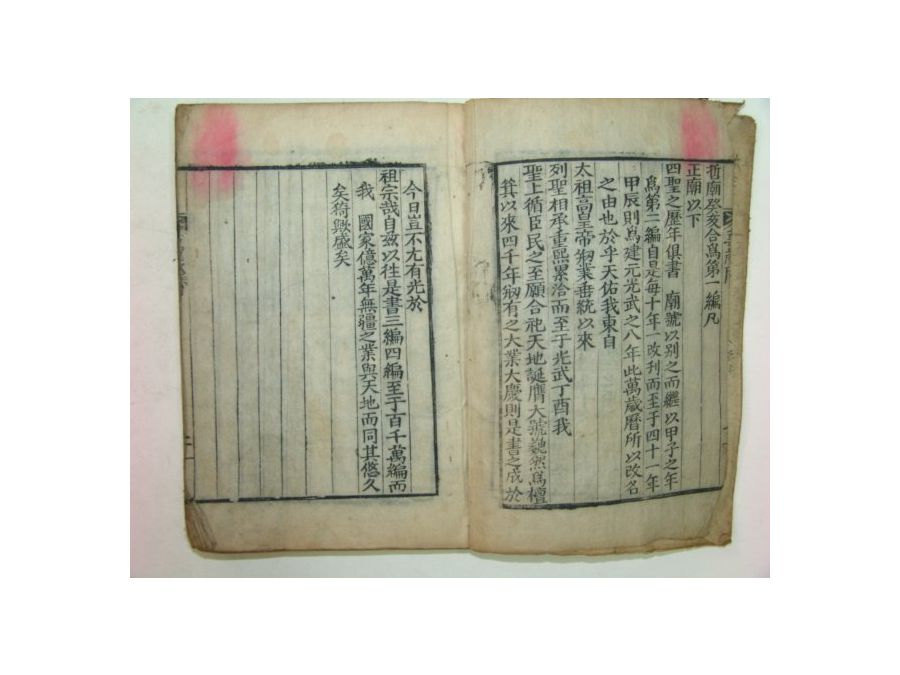 哲廟癸亥合爲第一編凡
正廟以下
四聖之歷年俱書　廟號以別之而繼以甲子之年
爲第二編自是每十年一改刊而至于四十一年
甲辰則爲建元光武之八年此萬歲曆所以改名
之由也於乎天佑我東自
太祖高皇帝刱業垂統以來
列聖相承重熙累洽而至于光武丁酉我
聖上循臣民之至願合祀天地誕膺大號巍然爲檀
箕以來四千年刱有之大業大慶則是書之成於
今日豈不尤有光於
祖宗哉自玆以往是書三編四編至于百千萬編而
我　國家億萬年無疆之業與天地而同其悠久
矣猗歟盛矣